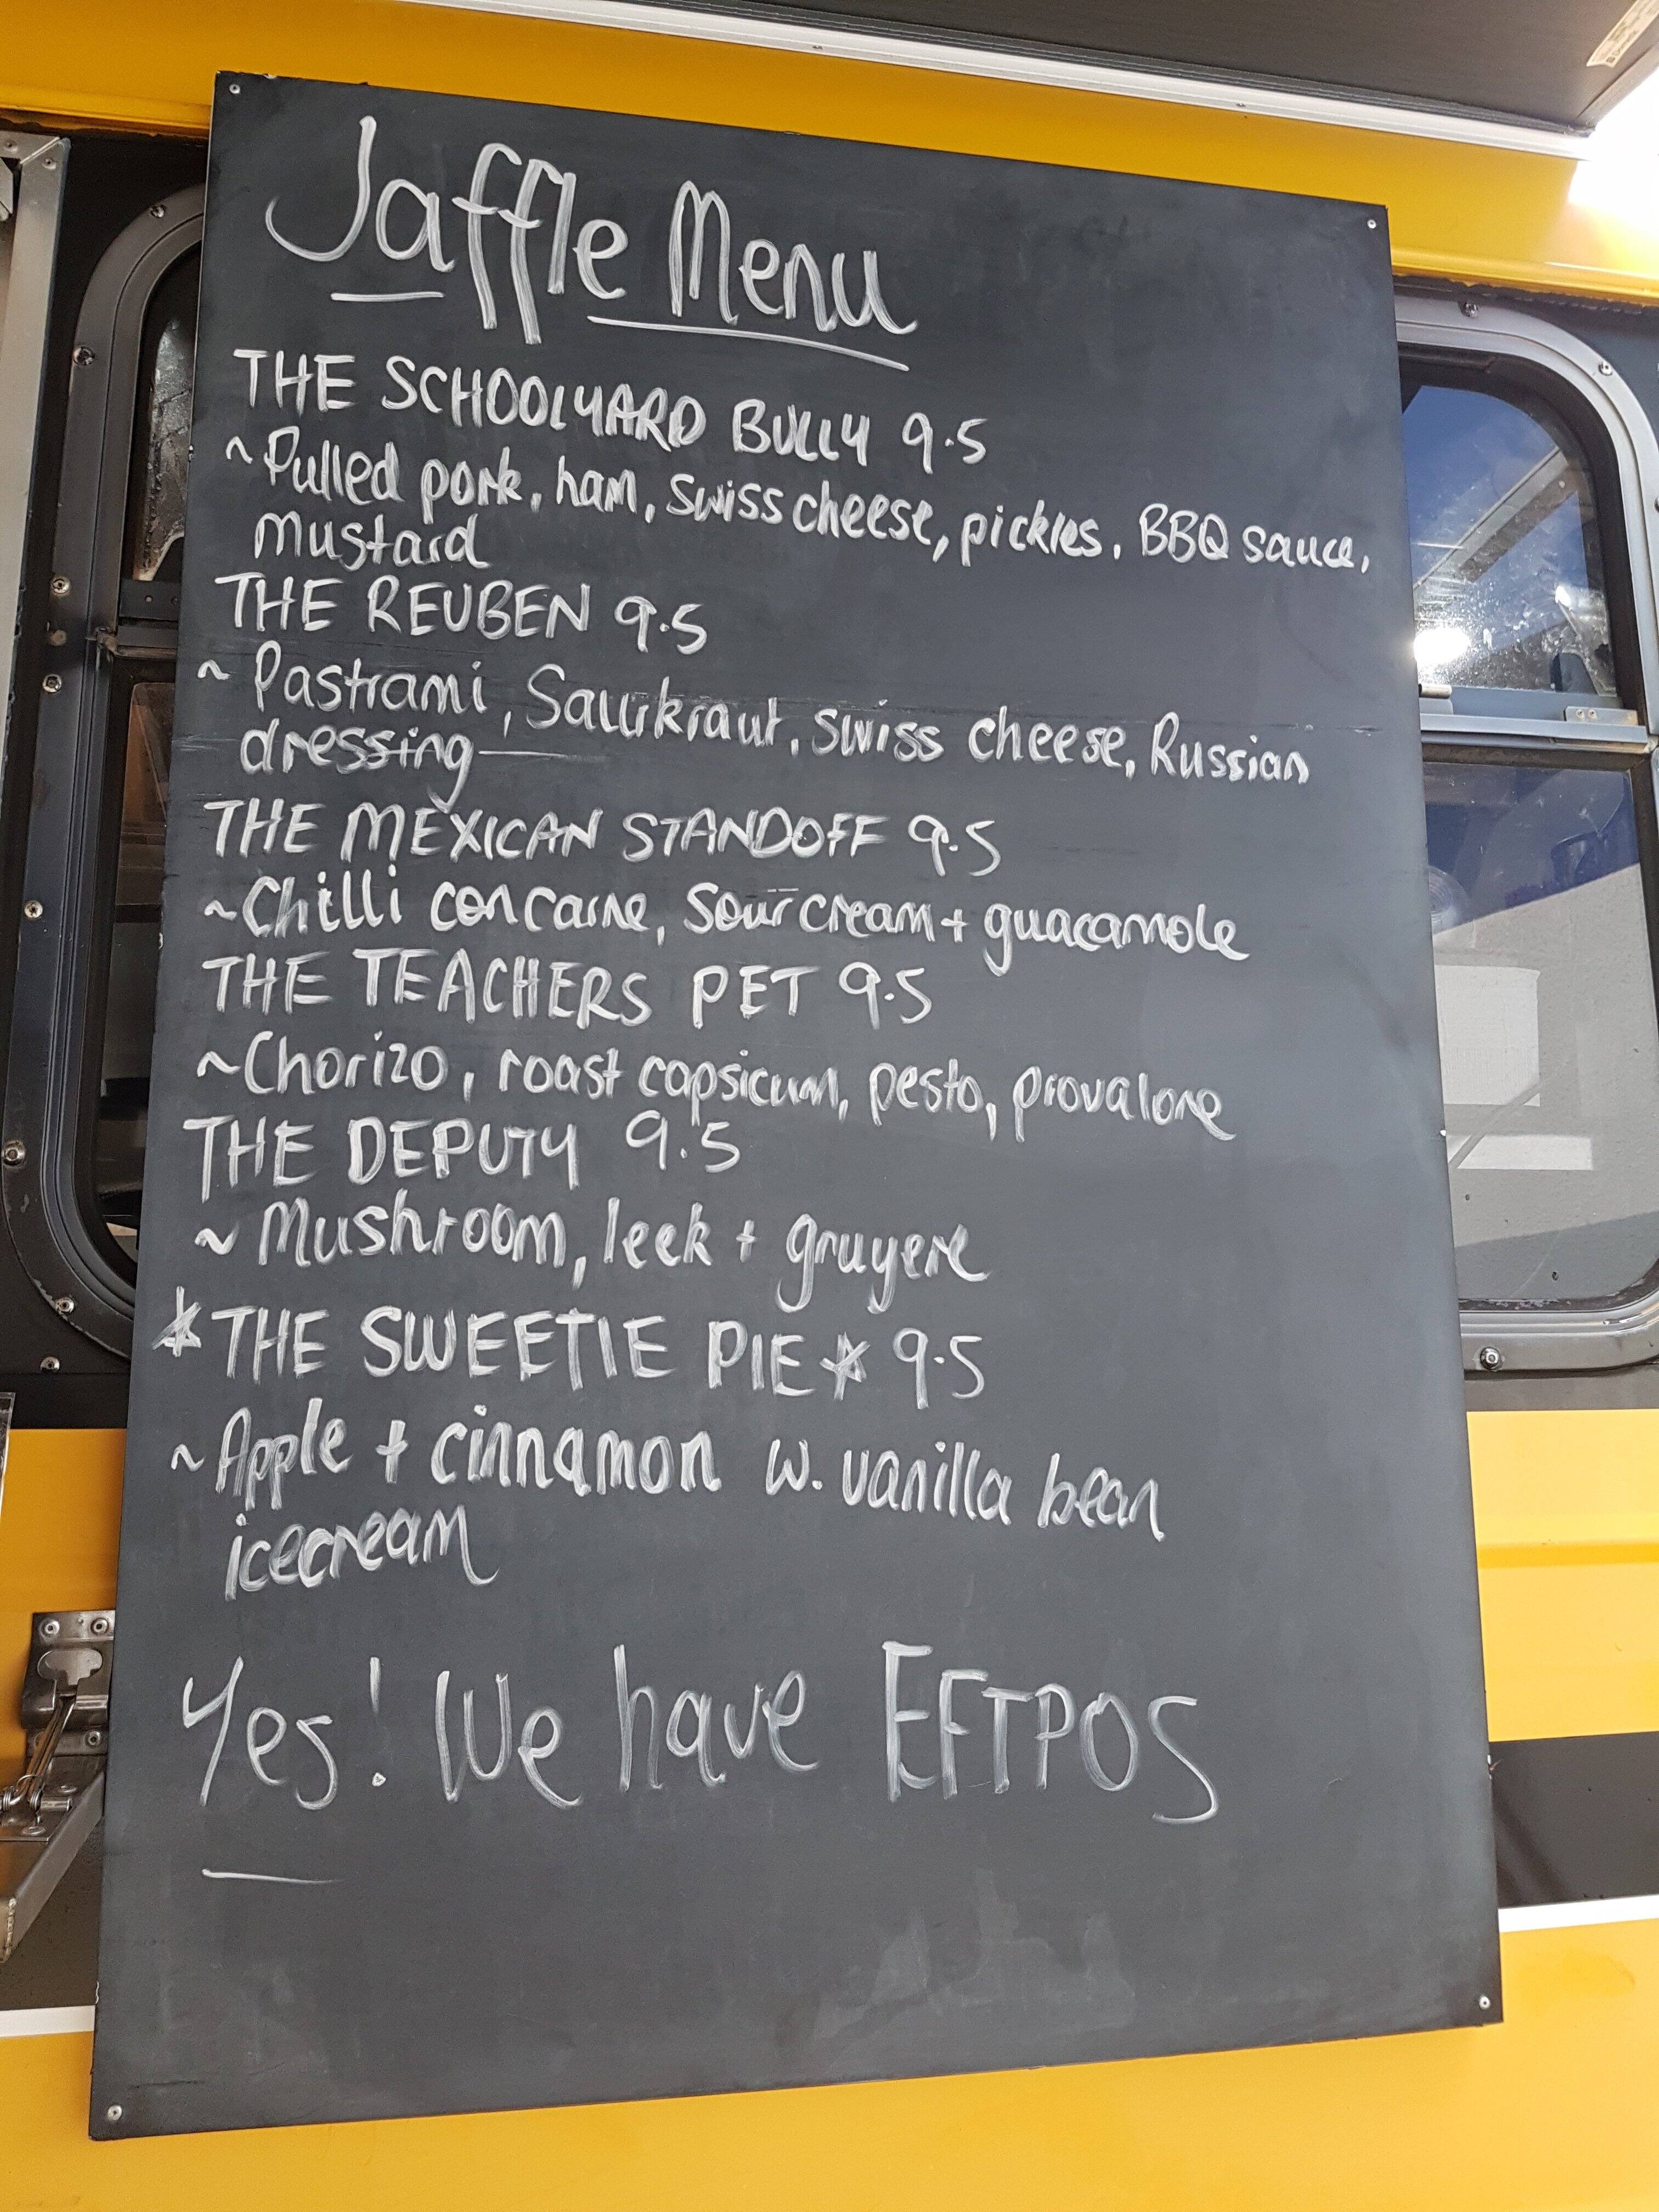 Jaffle Menu
THE SCHOOLYARD BULLY 9.5
~Pulled pork, ham, swiss cheese, pickles, BBQ sauce,
mustard
THE REUBEN 9.5
~ Pastrami, Sauerkraut, swiss cheese, Russian
dressing
THE MEXICAN STANDOFF 9.5
~Chilli concarne, sour cream + guacamole
THE TEACHERS PET 9.5
~Chorizo, roast capsicum, pesto, provalone
THE DEPUTY 9.5
~ Mushroom, leek + gruyere
*THE SWEETIE PIE* 9.5
~Apple + cinnamon w. vanilla bean
icecream
Yes! We have EFTPOS